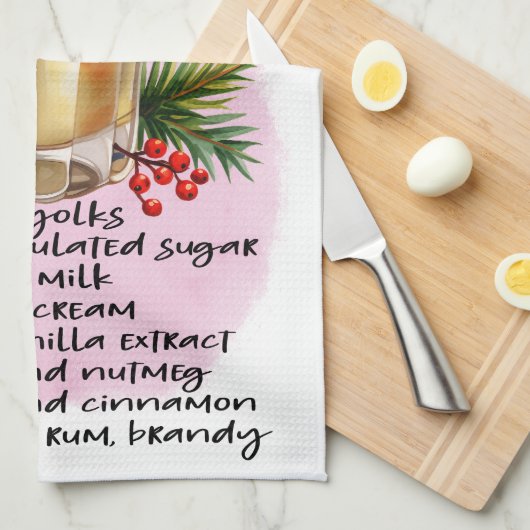 yolks
ulated sugar
milk
cream
nilla extract
nd nutmeg
nd cinnamon
rum, brandy